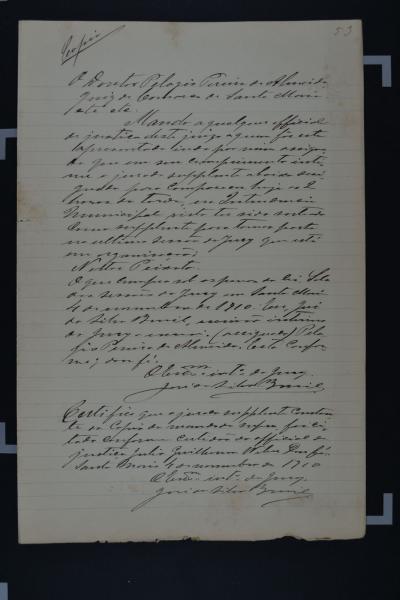 53
Copia
O Doutor Pelagio Pereira de Almeida
Juiz de Comarca de Santa Maria
etc etc.
Mando a qualquer official
de justiça deste juizo a quem fôr este
apresentado indo por mim assigna
do que em seu cumprimento inti
me o jurado supplente abaixo
para comparecer hoje as 2
horas da tarde, na Intendencia
Municipal visto ter sido sorteado
como supplente para tomar parte
na ultima sessão do Jury que está
em
Nestor Peixoto.
O que cumpra sob as penas da lei. Sala
das sessões do Jury em Santa Maria
4 de novembro de 1910. Eu, José
da Silva Brasil, escrivão interino
do Jury o escrevi. (assignado) Pela
gio Pereira de Almeida. Está confor
me; dou fé.
O Escrm int.º do Jury
José da Silva Brasil
Certifico que o jurado supplente constan
te da copia do mandado supra foi ci
tado conforme certidão do official de
justiça Julio Guilherme Dou fé.
Santa Maria 4 de novembro de 1910
O Escrm int.º do Jury
José da Silva Brasil